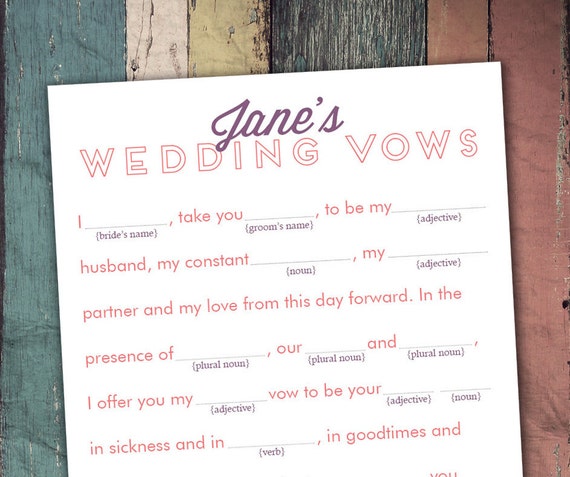 Jane's
WEDDING VOWS
I ____________, take you ____________, to be my ____________
{bride's name} {groom's name} {adjective}
husband, my constant ____________, my ____________
{noun} {adjective}
partner and my love from this day forward. In the
presence of ____________, our ____________ and ____________,
{plural noun} {plural noun} {plural noun}
I offer you my ____________ vow to be your ____________ ____________
{adjective} {adjective} {noun}
in sickness and in ____________, in goodtimes and
{verb}
you